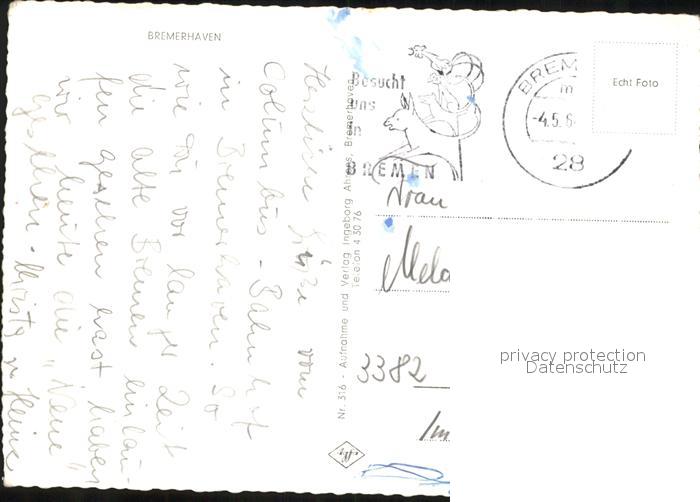 BREMERHAVEN
Herzliche Grüße vom
Columbus-Bahnhof
in Bremerhaven. So
wie Du vor langer Zeit
die alte Bremen einlau-
fen gesehen hast haben
wir heute die "Neue"
gesehen.
Nr. 316 - Aufnahme und Verlag Ingeborg Ahrens, Bremerhaven
Telefon 4 30 76
Besucht
uns
in
BREMEN
BREM
-4.5.6
28
Echt Foto
Frau
Mela
3382
privacy protection
Datenschutz